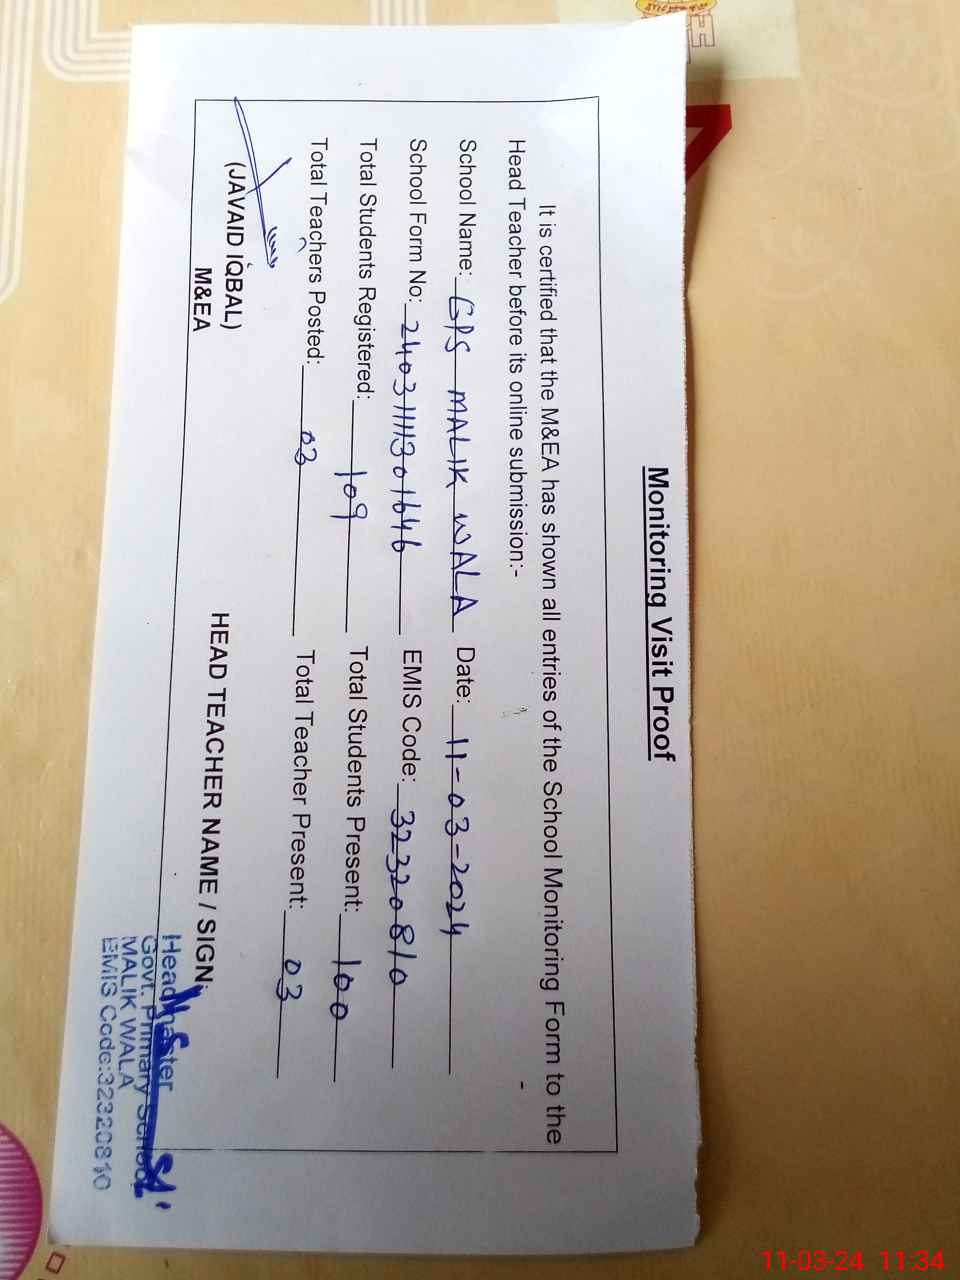 Monitoring Visit Proof
It is certified that the M&EA has shown all entries of the School Monitoring Form to the
Head Teacher before its online submission:-
School Name: GPS MALIK WALA Date: 11-03-2024
School Form No: 24031111301646 EMIS Code: 32320810
Total Students Registered: 109 Total Students Present: 100
Total Teachers Posted: 03 Total Teacher Present: 03
(JAVAID IQBAL)
M&EA
HEAD TEACHER NAME / SIGN:
Headmaster
Govt. Primary School
MALIK WALA
EMIS Code:32320810
11-03-24 11:34